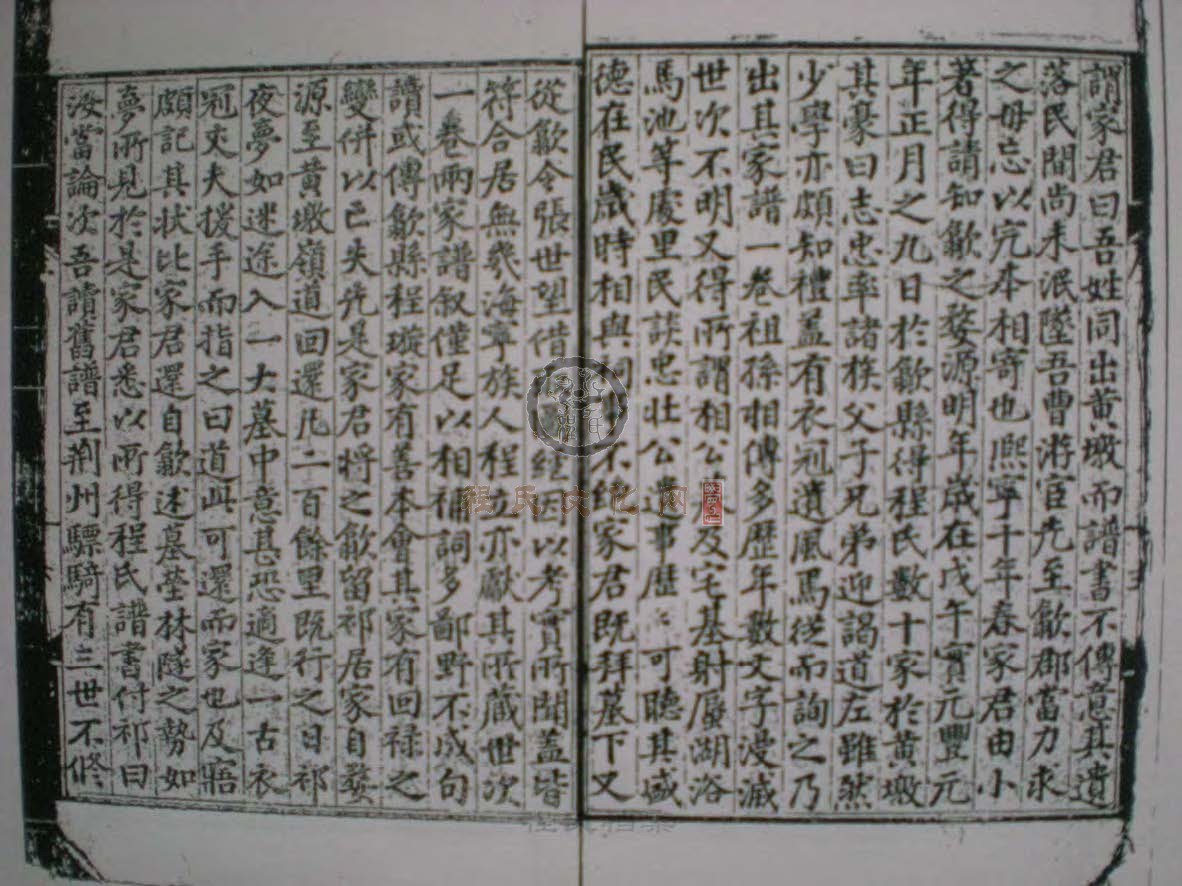 謂家君曰吾姓同出黃墩而譜書不傳意其遺
落民間尚未泯墜吾曹游官先至歙郡當力求
之毋忘以完本相寄也熙寧十年春家君由小
著得請知歙之婺源明年歲在戊午實元豐元
年正月之九日於歙縣得程氏數十家於黃墩
其豪曰志忠率諸族父子兄弟迎謁道左雖然
少學亦頗知禮蓋有衣冠遺風焉從而詢之乃
出其家譜一卷祖孫相傳多歷年數文字漫滅
世次不明又得所謂相公及宅基射蜃湖浴
馬池等處里民談忠壯公遺事歷歷可聽其盛
德在民歲時相與祠不絕家君既拜墓下又
從歙令張世望借經因以考實所聞蓋皆
符合居無幾海寧族人程立亦獻其所藏世次
一卷兩家譜叙僅足以相補詞多鄙野不成句
讀或傳歙縣程璇家有善本會其家有回祿之
變併以亡失先是家君將之歙留祁居家自婺
源至黃墩嶺道回還凡二百餘里既行之日祁
夜夢如迷途入一大墓中意甚恐適逢一古衣
冠丈夫援手而指之曰道此可還而家也及寤
頗記其狀比家君還自歙述墓塋林隧之勢如
夢所見於是家君悉以所得程氏譜書付祁曰
汝當論次吾讀舊譜至荊州驃騎有三世不脩
程氏文化网